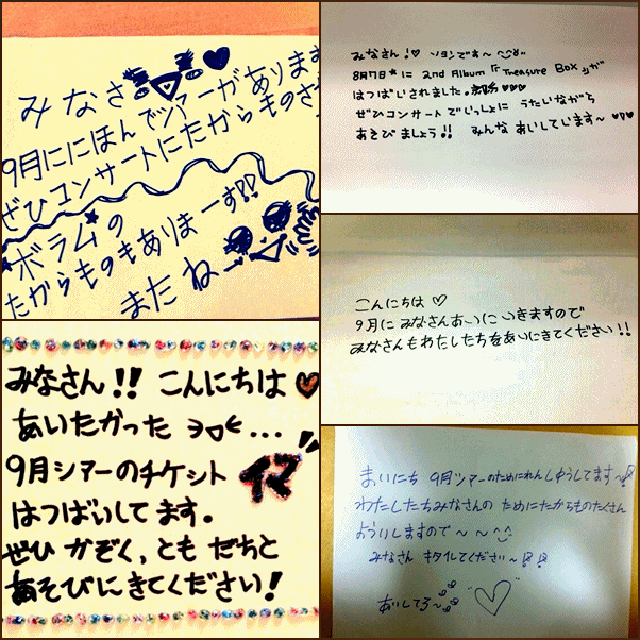 みなさ
9月ににほんでツアーがあります
ぜひコンサートにたからものさ
ボラムの
たからものもありまーす!!
またね~
みなさん!! こんにちは♡
あいたかった
9月ツアーのチケット イマ
はつばいしてます。
ぜひ かぞく、とも だちと
あそびにきてください!
みなさん!♡ ソヨンです~
8月7日*に 2nd Album『Treasure Box』が
はつばいされました。 ♡♡♡
ぜひコンサートでいっしょに うたいながら
あそびましょう!! みんな あいしています~ ♡♡♡
こんにちは ♡
9月にみなさんあいに いきますので
みなさんもわたしたちをあいにきてください!!
まいにち 9月ツアーのためにれんしゅうしてます~
わたしたちみなさんの ためにたからものたくさん
よういしますので~~^^
みなさん キタイしてください~
あいしてる~ ♡